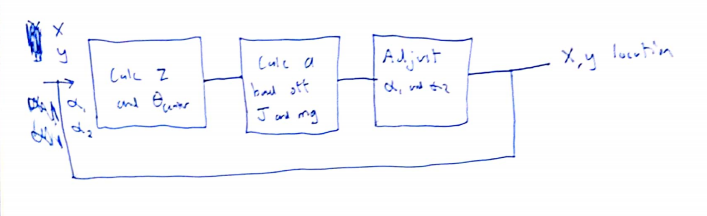 x
y
α₁
α₂
Calc Z
and θcenter
Calc a
based off
J and mg
Adjust
α₁ and α₂
x, y location